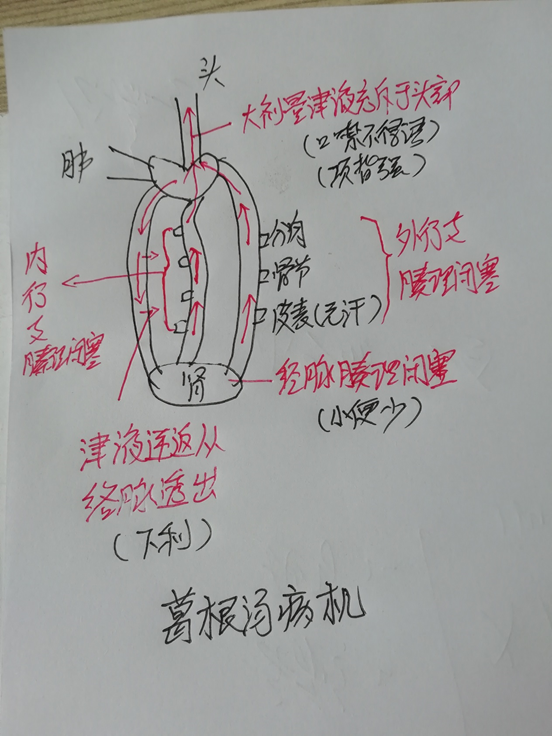 头
大剂量津液充斥于头部
(口噤不得语)
(项背强)
肺
分肉
骨节
皮表(无汗)
外行支
腠理闭塞
内
行
支
腠理闭塞
肾
经脉腠理闭塞
(小便少)
津液逆返从
络脉透出
(下利)
葛根汤病机